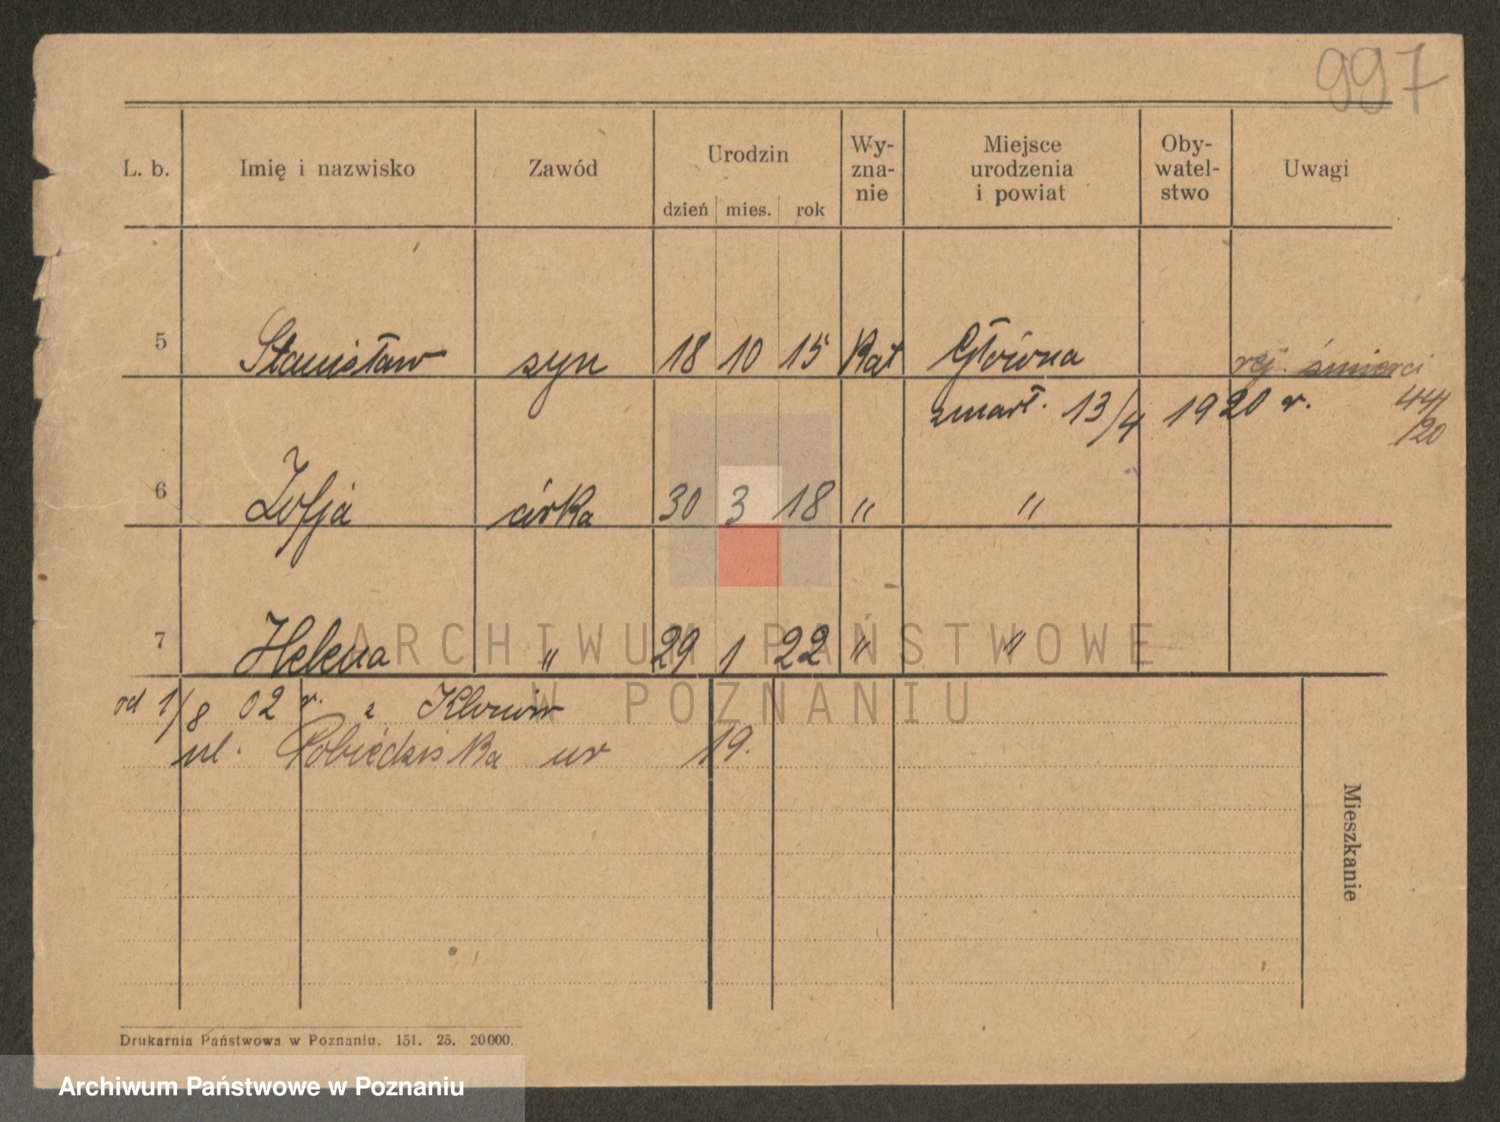 997
L. b. Imię i nazwisko Zawód Urodzin dzień mies. rok Wy-zna-nie Miejsce urodzenia i powiat Oby-watel-stwo Uwagi
5 Stanisław syn 18 10 15 Kat Główna rej. śmierci
zmarł. 13/4 1920 r. 44/20
6 Zofja córka 30 3 18 " "
7 Helena " 29 1 22 " "
ARCHIWUM PAŃSTWOWE
W POZNANIU
od 1/8 02 r. z
ul. Pobiedziska nr 19.
Mieszkanie
Drukarnia Państwowa w Poznaniu. 151. 25. 20000.
Archiwum Państwowe w Poznaniu